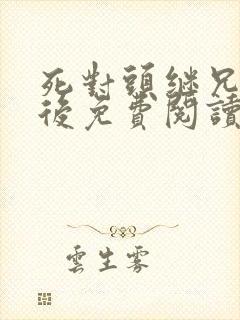 死對頭繼兄
後免費閱讀
雲生霧